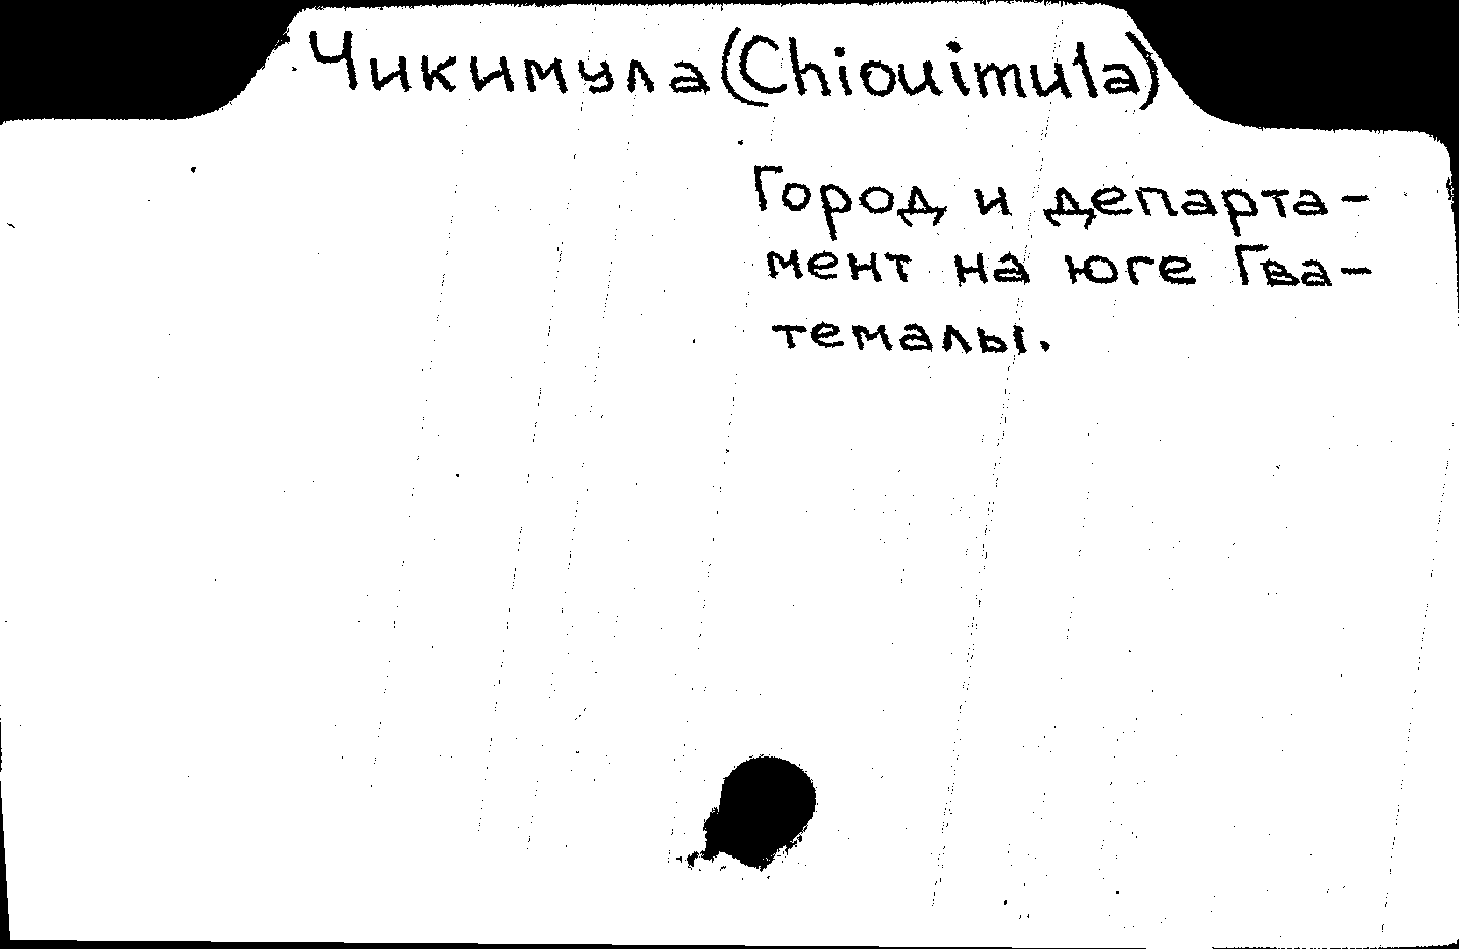 Чикимула (Chiouimula)
Город и департа-
мент на юге Гва-
темалы.